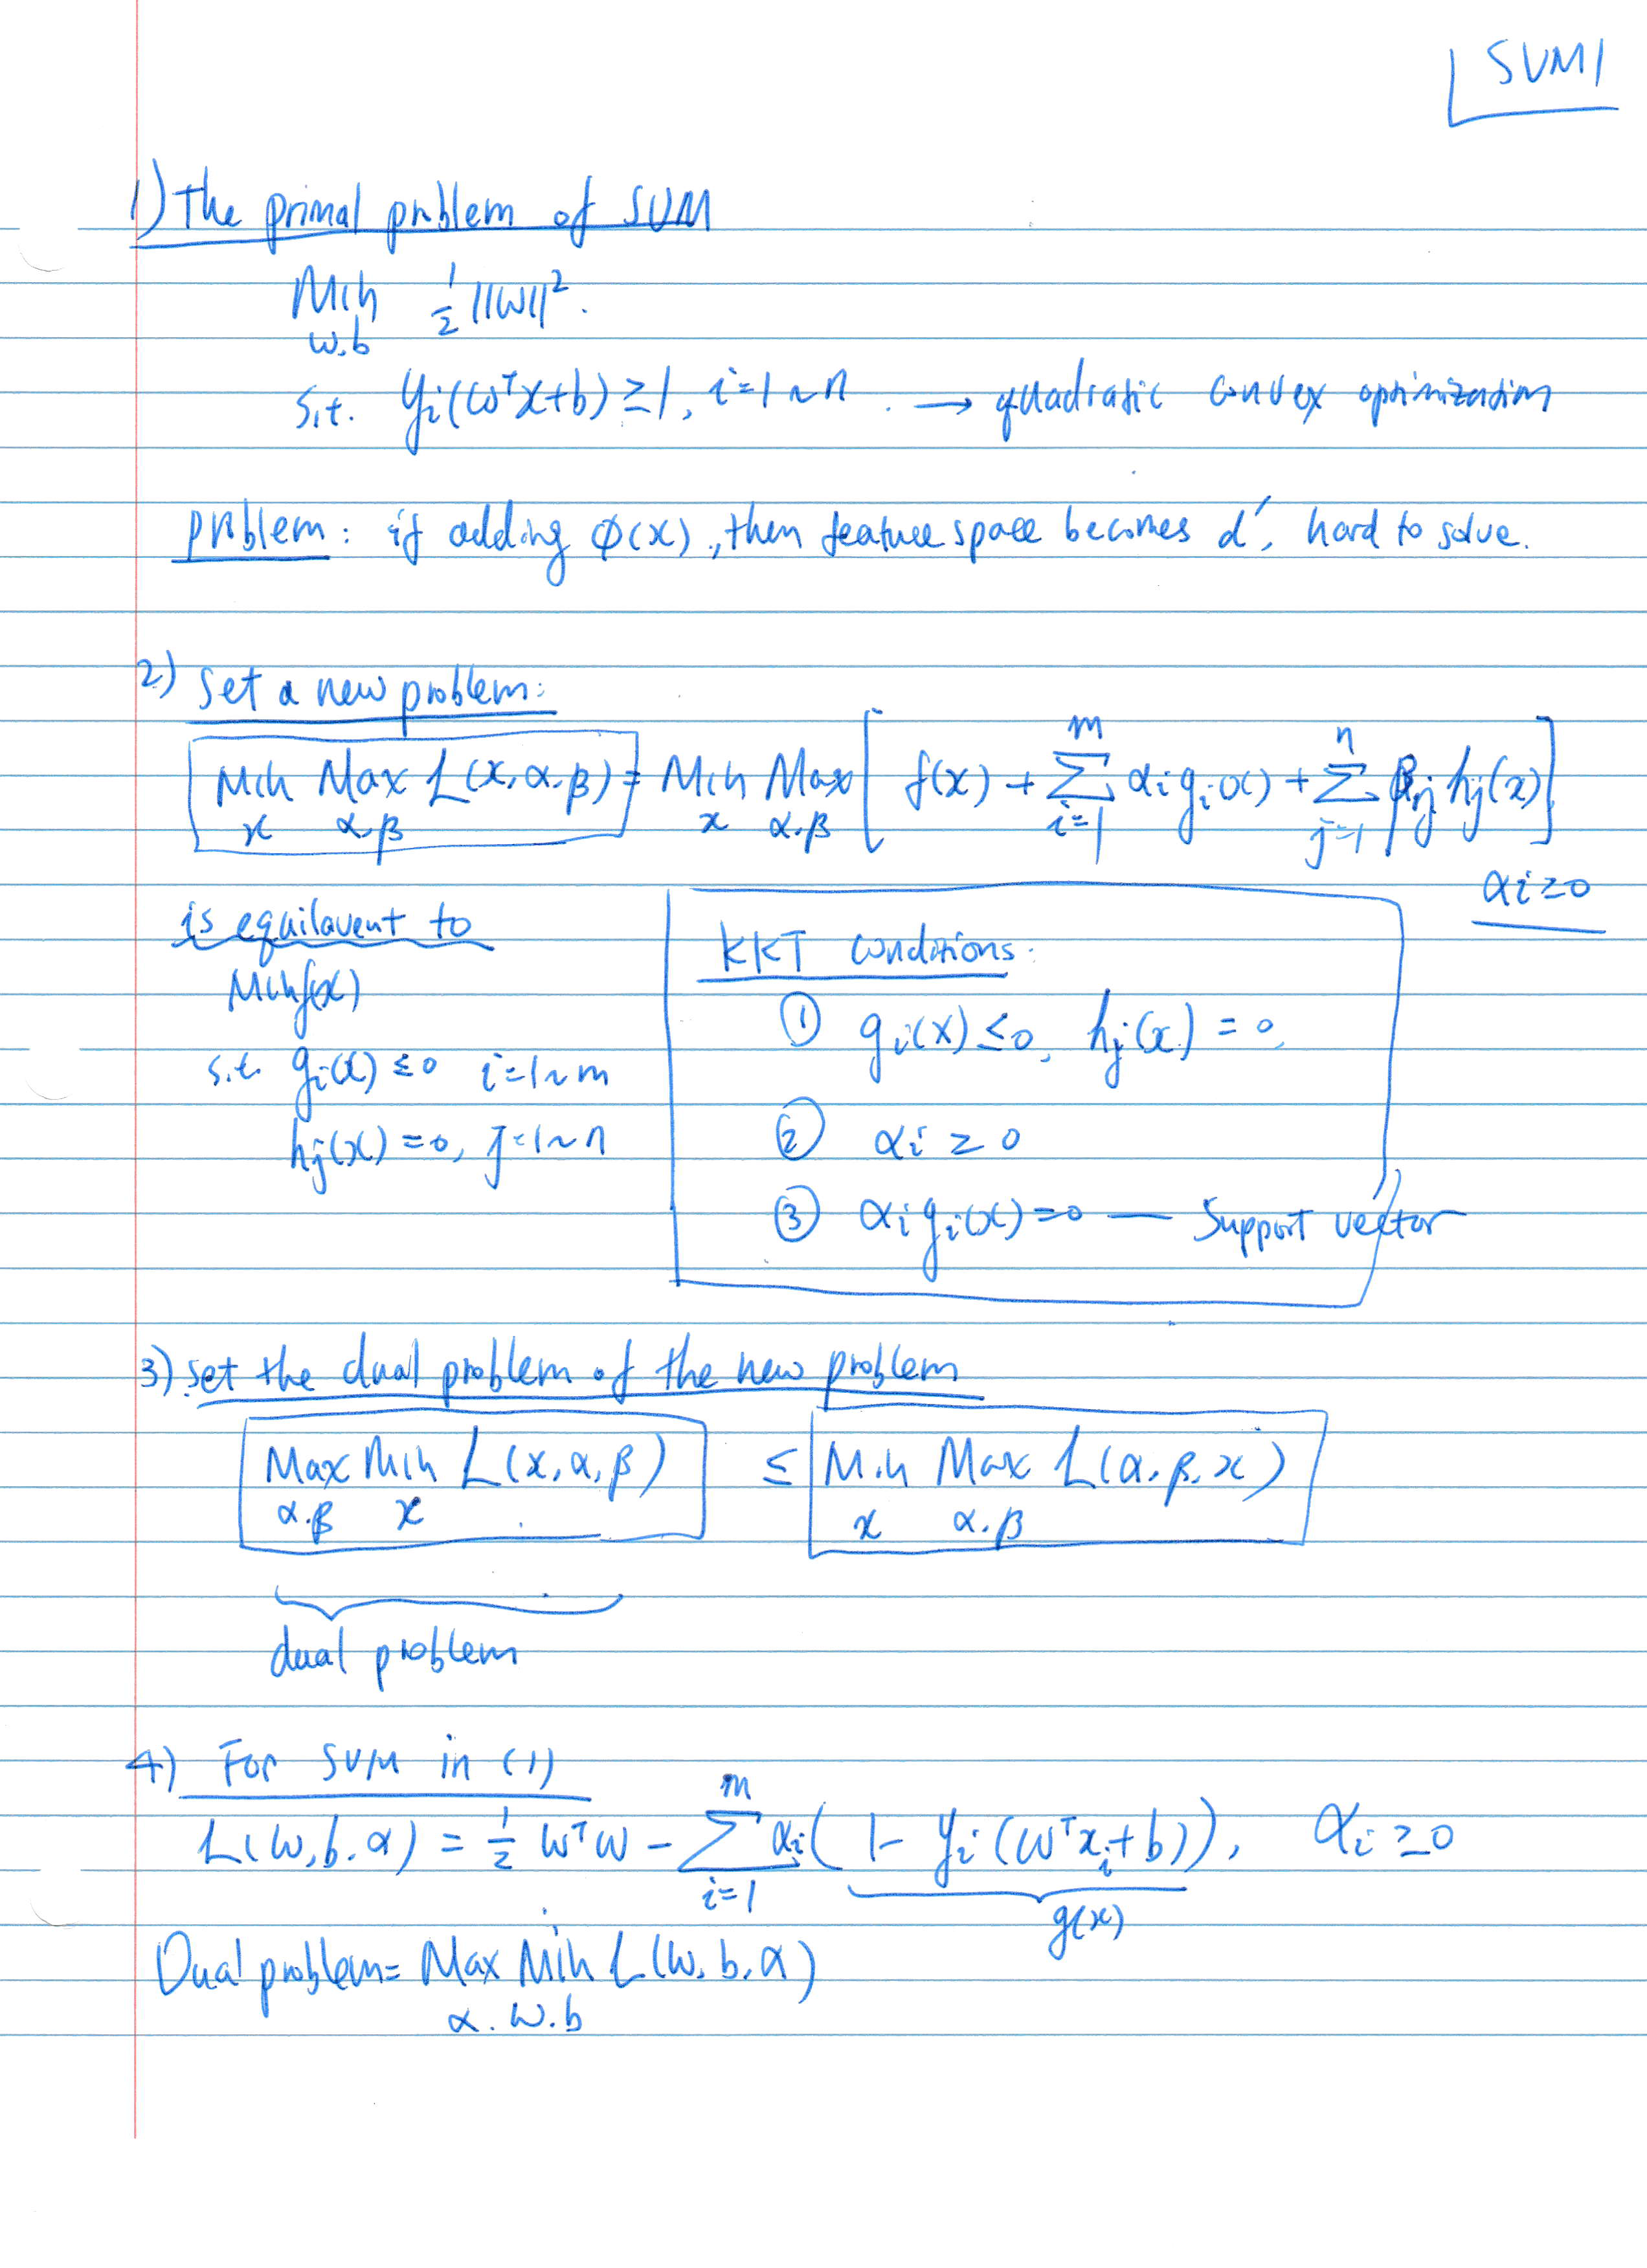 SVM1
1) The primal problem of SVM
Min 1/2 ||w||².
w,b
s.t. yᵢ(wᵀx+b) ≥ 1, i=1~n. → quadratic convex optimization
problem: if adding φ(x), then feature space becomes d', hard to solve.
2) Set a new problem:
Min Max L(x, α, β) = Min Max [ f(x) + Σ αᵢ gᵢ(x) + Σ βⱼ hⱼ(x) ]
x α.β x α.β i=1 m j=1 n
αi ≥ 0
is equilavent to
Min f(x)
s.t. gᵢ(x) ≤ 0 i=1~m
hⱼ(x) = 0, j=1~n
KKT conditions:
① gᵢ(x) ≤ 0, hⱼ(x) = 0,
② αi ≥ 0
③ αᵢ gᵢ(x) = 0 — Support vector
3) set the dual problem of the new problem
Max Min L(x, α, β) ≤ Min Max L(α, β, x)
α.β x x α.β
dual problem
4) For SVM in (1)
L(w, b, α) = 1/2 wᵀw - Σ αᵢ( 1 - yᵢ(wᵀxᵢ+b)), αi ≥ 0
i=1 m
g(x)
Dual problem = Max Min L(w, b, α)
α. w.b